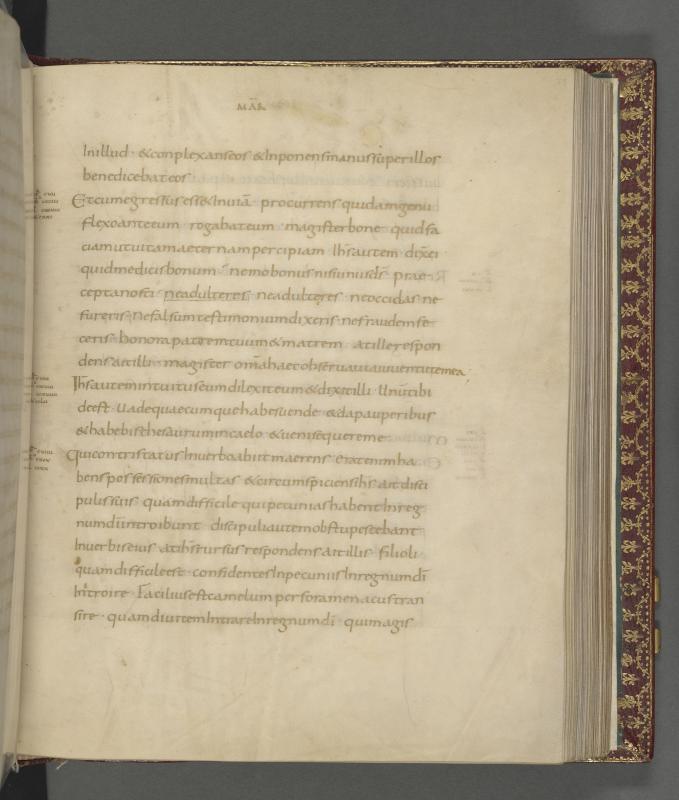 MAR
In illud · & conplexans eos & Inponens manus super illos
benedicebat eos
Et cum egressus ess& Inuiā procurrens quidam genu
flexo ante eum rogabat eum · magister bone quid fa
ciam ut uitam aeternam percipiam Ihs autem dixei
quid me dicis bonum · nemo bonus nisi unus ds prae
cepta nosti · ne adulteres ne adulteres · ne occidas ne
fureris · ne falsum testimonium dixeris · ne fraudem fe
ceris · honora patrem tuum & matrem · at ille respon
dens ait illi · magister omā haec obseruaui a iuuentute mea
Ihs autem intuitus eum dilexit eum & dixit illi · Unū tibi
deest · uade quaecumque habes uende · & da pauperibus
& habebis thesaurum in caelo · & ueni sequere me
Qui contristatus In uerbo abiit maerens erat enim ha
bens possessiones multas & circumspiciens ihs ait disci
pulis suis quam difficile qui pecunias habent In reg
num dī introibunt discipuli autem obstupescebant
In uerbis eius at ihs rursus respondens ait illis · filioli
quam difficile est · confidentes In pecuniis In regnum dī
Introire · Facilius est camelum per foramen acus tran
sire · quam diuitem Intrare In regnum dī qui magis